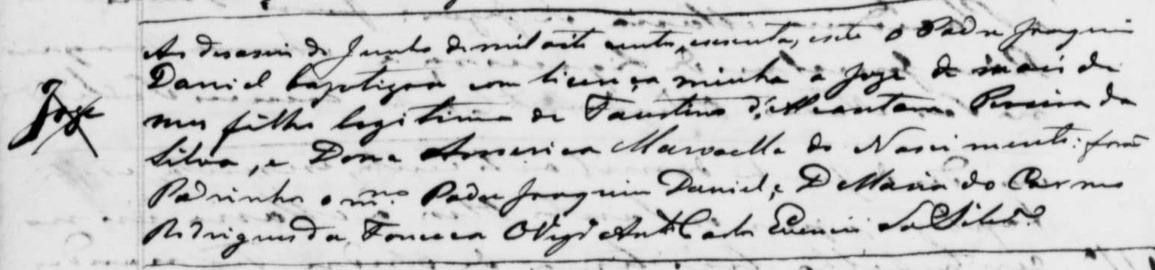 Joze
Aos desaseis de Junho de mil oito centos, secenta, e sete o Padre Joaquim
Daniel baptizou com licença minha a Joze de mais de
mez filho legitimo de Faustino d'Alcantara Pereira da
Silva, e Dona America do Nascimento: forão
Padrinhos o mmo. Padre Joaquim Daniel, e D Maria do Carmo
Rodrigues da Fonceca O Vigro Anto Carlos da Silva.